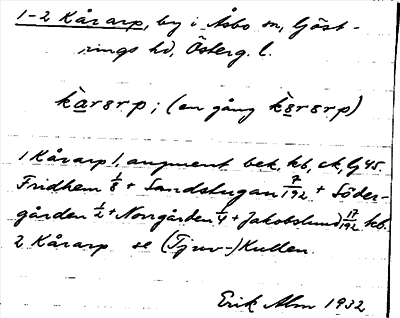 1-2 Kårarp, by i Åsbo sn, Göst-
rings hd, Österg. l.
kararp; (en gång kararp)
1 Kårarp 1, augment bek. kb, ck, Gj 45.
Fridhem 1/8 + Sandstugan 7/192 + Söder-
gården 1/2 + Norrgården 1/4 + Jakobslund 17/192 kb.
2 Kårarp se (Tjuv-)Kullen.
Erik Alm 1932